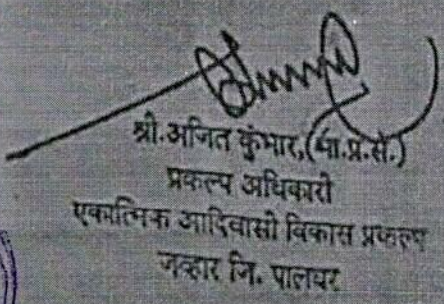 श्री.अजित कुंभार,(भा.प्र.से.)
प्रकल्प अधिकारी
एकात्मिक आदिवासी विकास प्रकल्प
जव्हार जि. पालघर